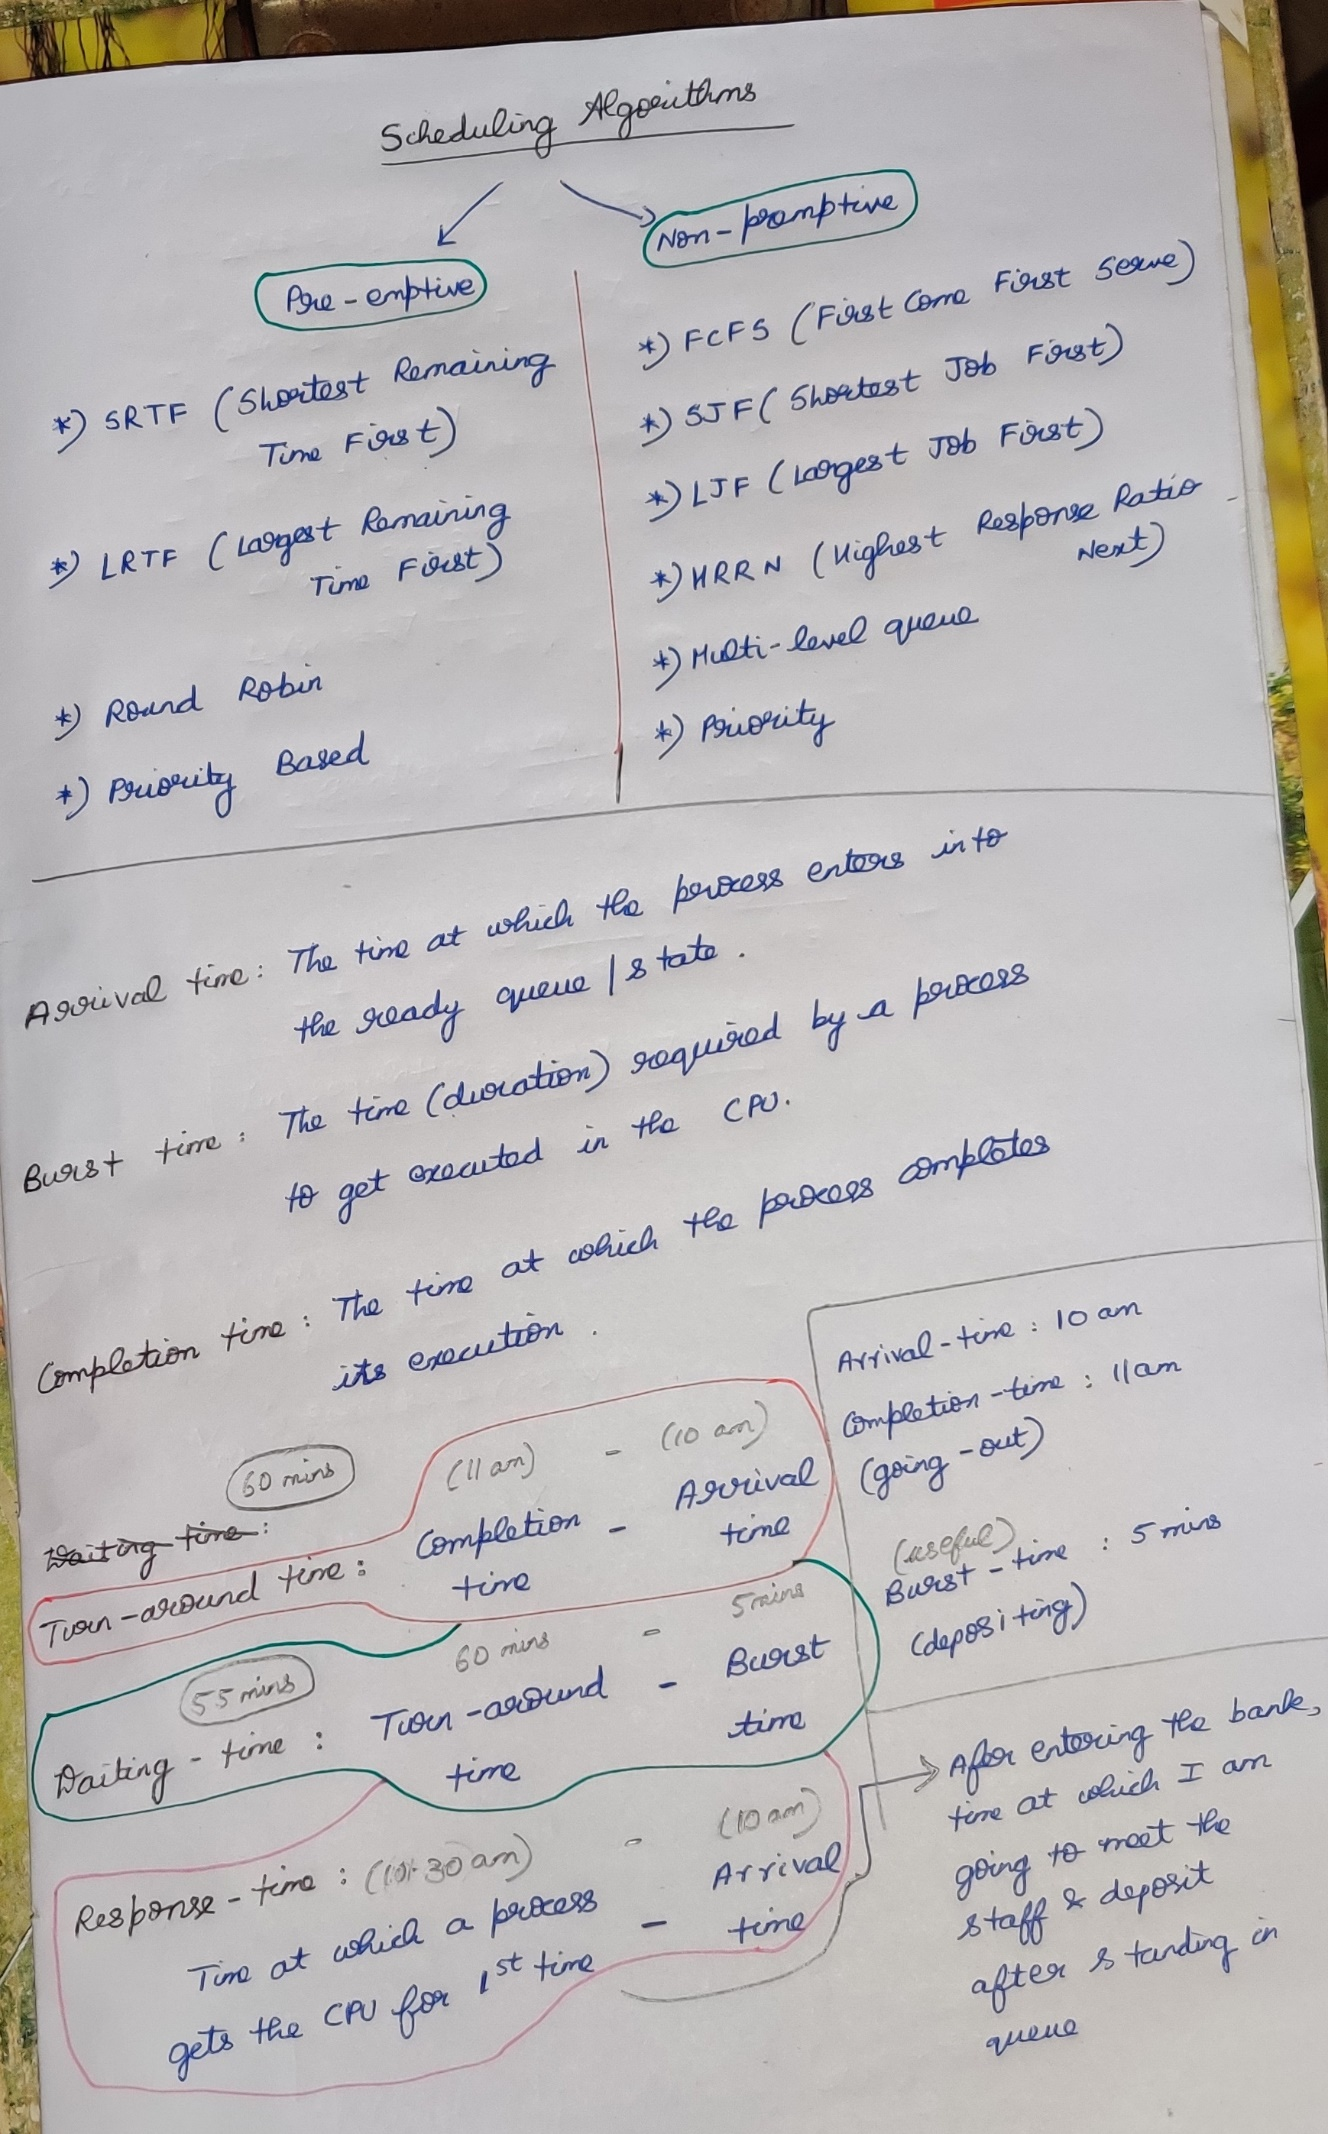 Scheduling Algorithms
Pre-emptive
*) SRTF (Shortest Remaining
Time First)
*) LRTF (Largest Remaining
Time First)
*) Round Robin
*) Priority Based
Non-promptive
*) FCFS (First Come First Serve)
*) SJF (Shortest Job First)
*) LJF (Largest Job First)
*) HRRN (Highest Response Ratio
Next)
*) Multi-level queue
*) Priority
Arrival time: The time at which the process enters into
the ready queue | state.
Burst time: The time (duration) required by a process
to get executed in the CPU.
Completion time: The time at which the process completes
its execution.
60 mins
(11 am) - (10 am)
Waiting time:
Turn-around time: Completion - Arrival
time time
55 mins
60 mins - 5 mins
Waiting-time: Turn-around - Burst
time time
Response-time: (10:30 am) - (10 am)
Time at which a process - Arrival
gets the CPU for 1st time time
Arrival-time: 10 am
Completion-time: 11 am
(going-out)
(useful)
Burst-time: 5 mins
(depositing)
After entering the bank,
time at which I am
going to meet the
staff & deposit
after standing in
queue